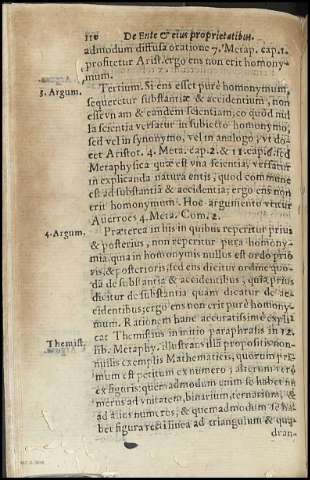 110 De Ente & eius proprietatibus.
admodum diffusa oratione 7. Metap. cap. 1.
profitetur Arist. ergo ens non erit homony-
mum.
3. Argum.
Tertium. Si ens esset purè homonymum,
sequeretur substantiæ & accidentium, non
esse vnam & eandem scientiam; eo quòd nul
la scientia versatur in subiecto homonymo,
sed vel in synonymo, vel in analogo; vt do
cet Aristot. 4. Meta. cap. 2. & 11. cap. sed
Metaphysica quæ est vna scientia, versatur
in explicanda natura entis, quod commune
est ad substantiā & accidentia; ergo ens non
erit homonymum. Hoc argumento vtitur
Auerroes 4. Meta. Com. 2.
4. Argum.
Præterea in his in quibus reperitur prius
& posterius, non reperitur pura homony-
mia quia in homonymis nullus est ordo prio
ris, & posterioris, sed ens dicitur ordine quo
dā de substantia & accidentibus, quia prius
dicitur de substantia quam dicatur de ac-
cidentibus; ergo ens non erit purè homony-
mum. Rationem hanc accuratissimè expli
Themist.
cat Themistius in initio paraphrasis in 12.
lib. Metaphy. illustrans illā propositis non-
nullis exemplis Mathematicis, quorum pri-
mum est petitum ex numero; alterum verò
ex figuris: quemadmodum enim se habet nu
merus ad vnitatem, binarium, ternarium, &
ad alios numeros; & quemadmodum se ha-
bet figura rectilinea ad triangulum & qua
dran-